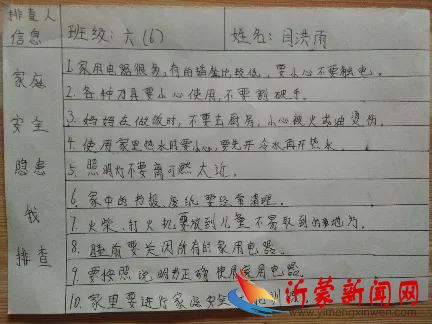 排查人信息 班级:六(6) 姓名:闫洪雨
家庭安全隐患我排查
1.家用电器很多,有的插座比较低,要小心不要触电。
2.各种刀具要小心使用,不要割破手。
3.妈妈在做饭时,不要去厨房,小心被火或油烫伤。
4.使用家里热水时要小心,要先开冷水再开热水。
5.照明灯不要离可燃太近。
6.家中的书报、废纸要经常清理。
7.火柴、打火机要放到儿童不易取到的地方。
8.睡前要关闭所有的家用电器。
9.要按照说明书正确使用家用电器。
10.家里要进行家庭安全
沂蒙新闻网
www.yimengxinwen.com